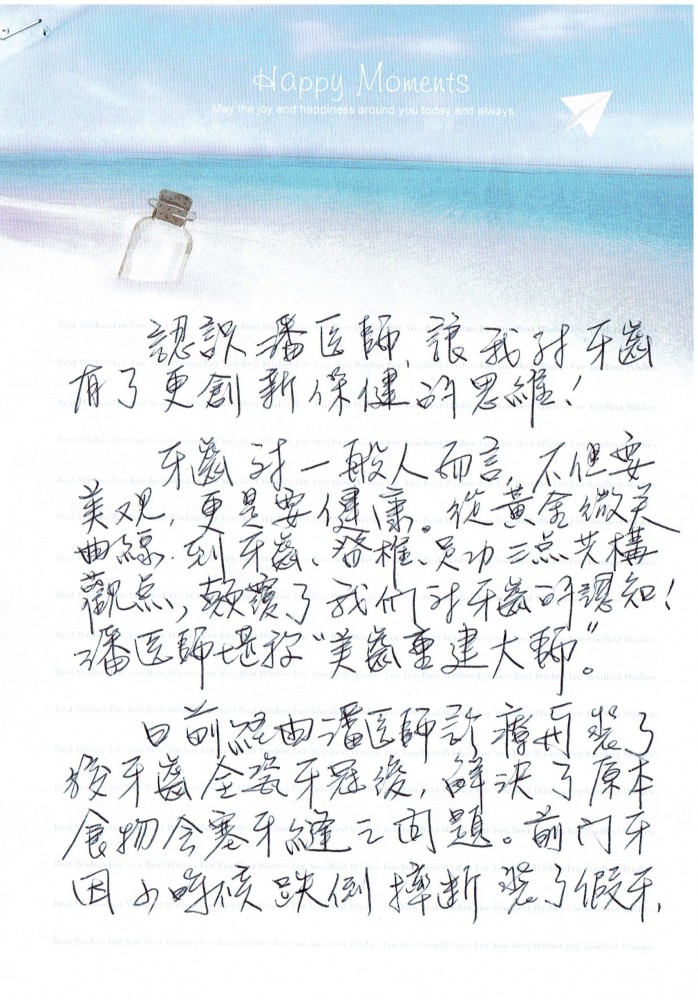 Happy Moments
May the joy and happiness around you today and always.
認識潘医師,讓我对牙齒
有了更創新保健的思維!
牙齒对一般人而言,不但要
美观,更是要健康。從黃金微笑
曲線.到牙齒、脊椎、足功三点共構
觀点,顛覆了我们对牙齒的認知!
潘医師堪称"美齒重建大師"。
日前経由潘医師診療
裝了
牙齒全瓷牙冠後,解決了原本
食物会塞牙縫之问題。前门牙
因小時候跌倒摔断裝了假牙,